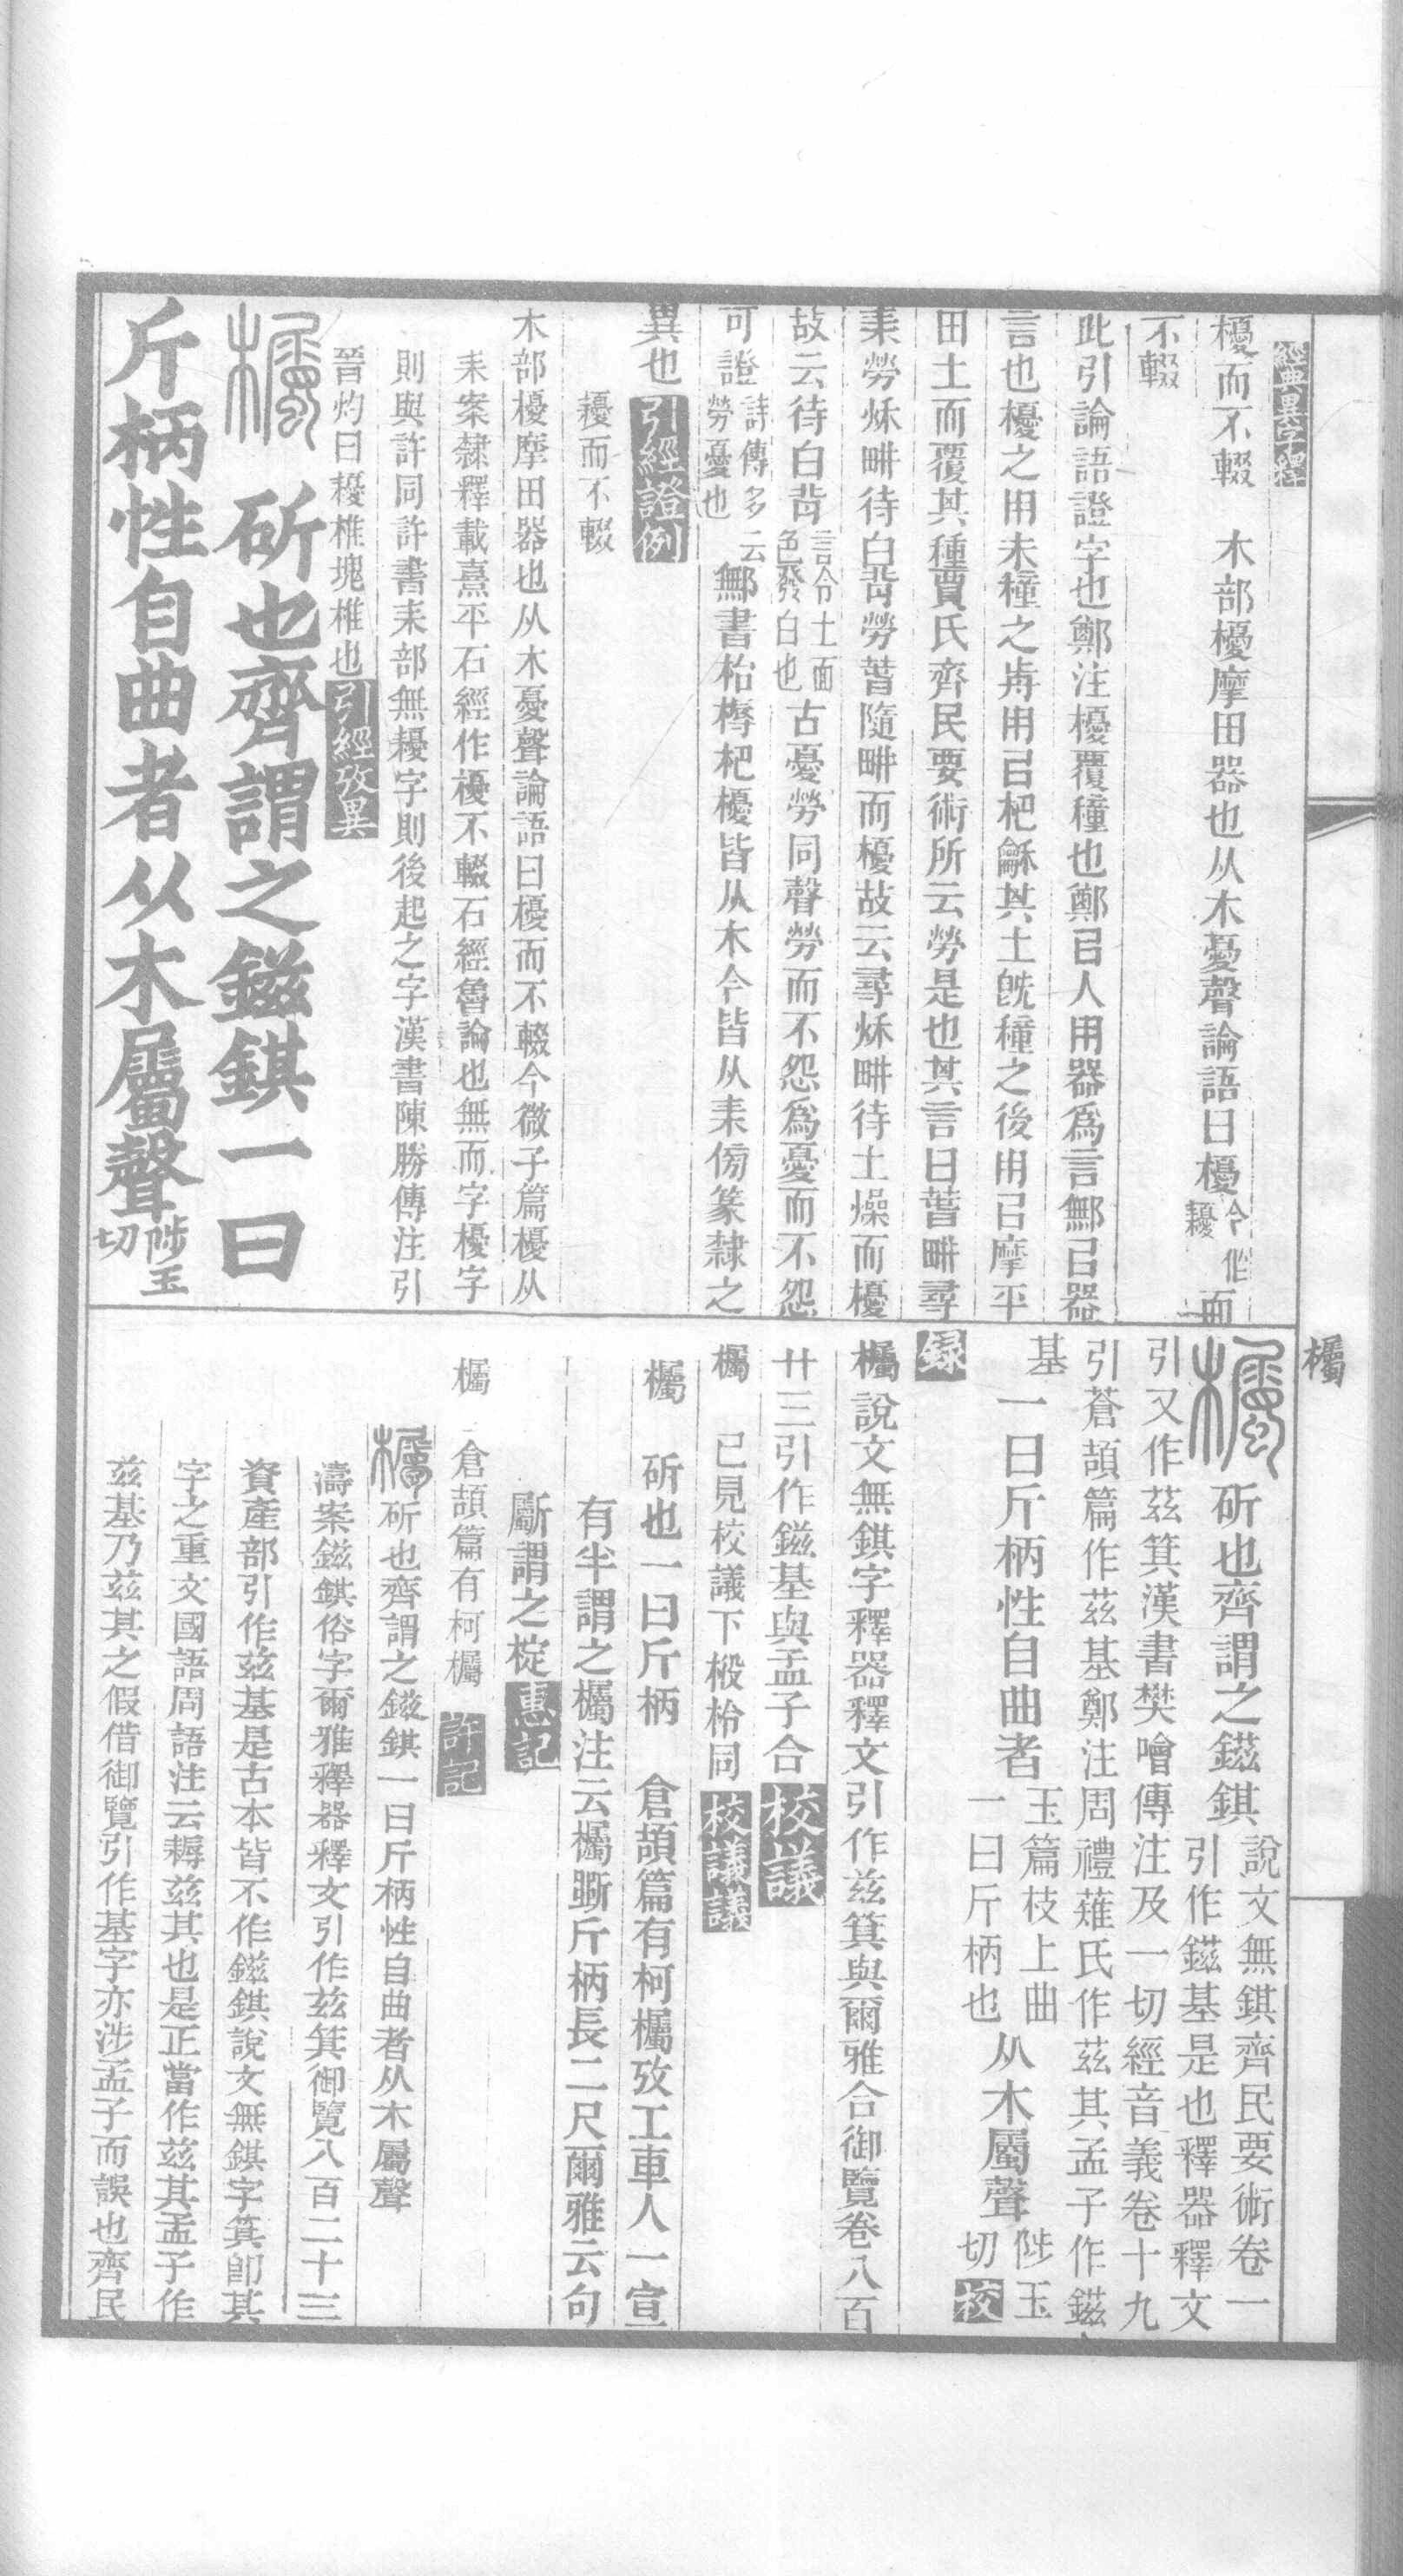 經典異字釋
櫌而不輟　木部櫌摩田器也从木憂聲論語曰櫌今作耰而
不輟
此引論語證字也鄭注櫌覆種也鄭㠯人用器爲言鄦㠯器
言也櫌之用未種之歬用㠯杷龢其土旣種之後用㠯摩平
田土而覆其種賈氏齊民要術所云勞是也其言曰耕尋
耒勞秌耕待白背勞隨耕而櫌故云尋秌耕待土燥而櫌
故云待白背言令土面色發白也古憂勞同聲勞而不怨爲憂而不怨
可證詩傳多云勞憂也鄦書枱槈杷櫌皆从木今皆从耒傍篆隸之
異也引經證例
耰而不輟
木部櫌摩田器也从木憂聲論語曰櫌而不輟今微子篇櫌从
耒案隸釋載熹平石經作櫌不輟石經魯論也無而字櫌字
則與許同許書耒部無耰字則後起之字漢書陳勝傳注引
晉灼曰耰椎塊椎也引經攷異
欘　斫也齊謂之鎡錤一曰
斤柄性自曲者从木屬聲陟玉切
欘
欘斫也齊謂之鎡錤說文無錤齊民要術卷一引作鎡基是也釋器釋文
引又作茲箕漢書樊噲傳注及一切經音義卷十九
引蒼頡篇作茲基鄭注周禮薙氏作茲其孟子作鎡
基一曰斤柄性自曲者玉篇枝上曲一曰斤柄也从木屬聲陟玉切校
録
欘說文無錤字釋器釋文引作茲箕與爾雅合御覽卷八百
廿三引作鎡基與孟子合校議
欘　已見校議下椴柃同校議議
欘　斫也一曰斤柄　倉頡篇有柯欘攷工車人一宣
有半謂之欘注云欘斲斤柄長二尺爾雅云句
斸謂之椗惠記
欘　倉頡篇有柯欘許記
欘斫也齊謂之鎡錤一曰斤柄性自曲者从木屬聲
濤案鎡錤俗字爾雅釋器釋文引作茲箕御覽八百二十三
資產部引作茲基是古本皆不作鎡錤說文無錤字箕卽其
字之重文國語周語注云耨茲其也是正當作茲其孟子作
茲基乃茲其之假借御覽引作基字亦涉孟子而誤也齊民